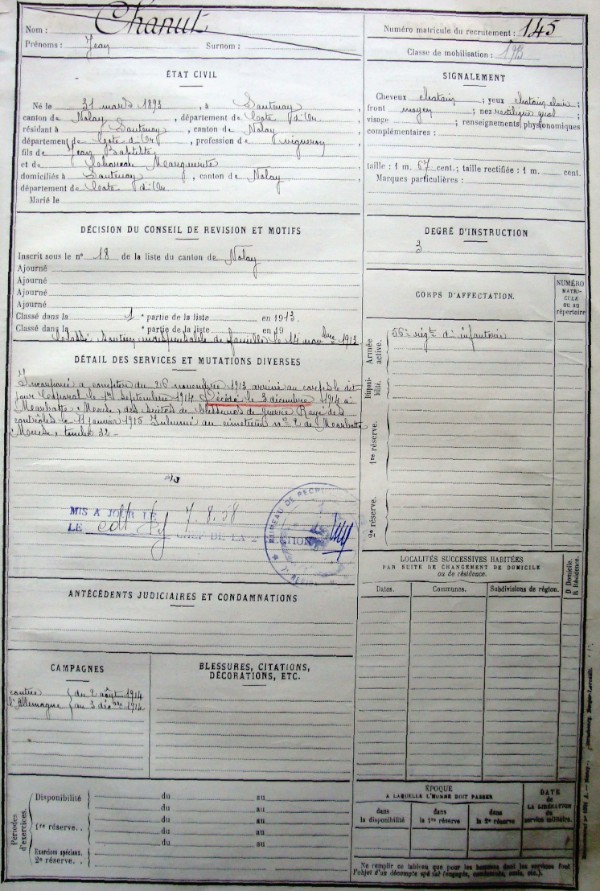 Nom : Chanut
Prénoms : Jean Surnom :
Numéro matricule du recrutement : 145
Classe de mobilisation : 1913
ÉTAT CIVIL
Né le 31 mars 1893, à Santenay
canton de Nolay, département de Côte d'Or
résidant à Santenay, canton de Nolay
département de Côte d'Or, profession de vigneron
fils de Jean Baptiste
et de Marguerite
domiciliés à Santenay, canton de Nolay
département de Côte d'Or
Marié le
SIGNALEMENT
Cheveux châtain ; yeux châtain clair ;
front moyen ; nez rectiligne ;
visage ; renseignements physionomiques
complémentaires :
taille : 1 m. 67 cent.; taille rectifiée : 1 m. cent.
Marques particulières :
DÉCISION DU CONSEIL DE REVISION ET MOTIFS
Inscrit sous le n° 18 de la liste du canton de Nolay
Ajourné
Ajourné
Ajourné
Ajourné
Classé dans la 1 e partie de la liste en 1913
Classé dans la e partie de la liste en 19
DEGRÉ D'INSTRUCTION
3
DÉTAIL DES SERVICES ET MUTATIONS DIVERSES
Incorporé à compter du 26 novembre 1913 arrivé au corps le dit
jour Caporal le septembre 1914 Décédé le 3 décembre 1914 à
Meuse, des suites de blessures de guerre Rayé des
contrôles le 11 janvier 1915 Inhumé au cimetière n° 2 de
Meuse, tombe 32
MIS A JOUR LE 7.8.58
LE DE LA
BUREAU DE
CORPS D'AFFECTATION.
NUMÉRO
MATRI-
CULE
OU AU
répertoire
Armée
active.
56e régt d'infanterie
Dispo-
nibil.
1re réserve.
2e réserve.
LOCALITÉS SUCCESSIVES HABITÉES
PAR SUITE DE CHANGEMENT DE DOMICILE
ou de résidence.
Dates. Communes. Subdivisions de région.
D Domicile.
R Résidence.
ANTÉCÉDENTS JUDICIAIRES ET CONDAMNATIONS
CAMPAGNES
contre du 2 août 1914
l'Allemagne au 3 déc bre 1914
BLESSURES, CITATIONS,
DÉCORATIONS, ETC.
Périodes
d'exercices.
Disponibilité du au
du au
1re réserve. du au
du au
Exercices spéciaux. du au
2e réserve. du au
ÉPOQUE
A LAQUELLE L'HOMME DOIT PASSER
dans
la disponibilité
dans
la 1re réserve
dans
la 2e réserve
DATE
DE LA LIBÉRATION
DU
service militaire.
Ne remplir ce tableau que pour les hommes dont les services font
l'objet d'un décompte spécial (engagés, condamnés, omis, etc.).